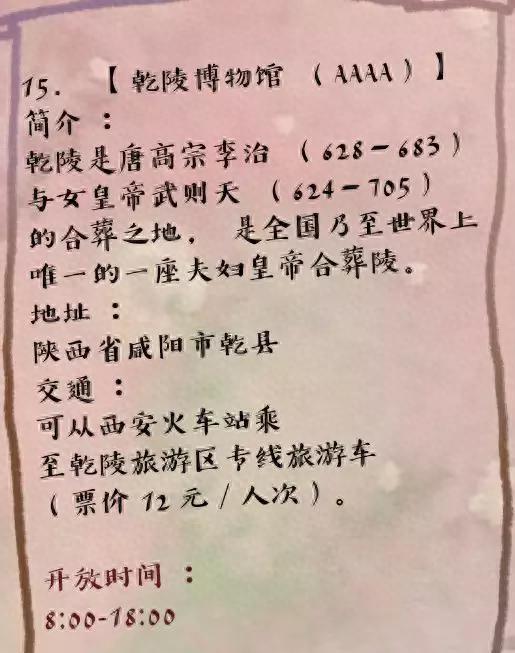 15. 【乾陵博物馆（AAAA）】
简介：
乾陵是唐高宗李治（628-683）
与女皇帝武则天（624-705）
的合葬之地，是全国乃至世界上
唯一的一座夫妇皇帝合葬陵。
地址：
陕西省咸阳市乾县
交通：
可从西安火车站乘
至乾陵旅游区专线旅游车
（票价12元/人次）。
开放时间：
8:00-18:00